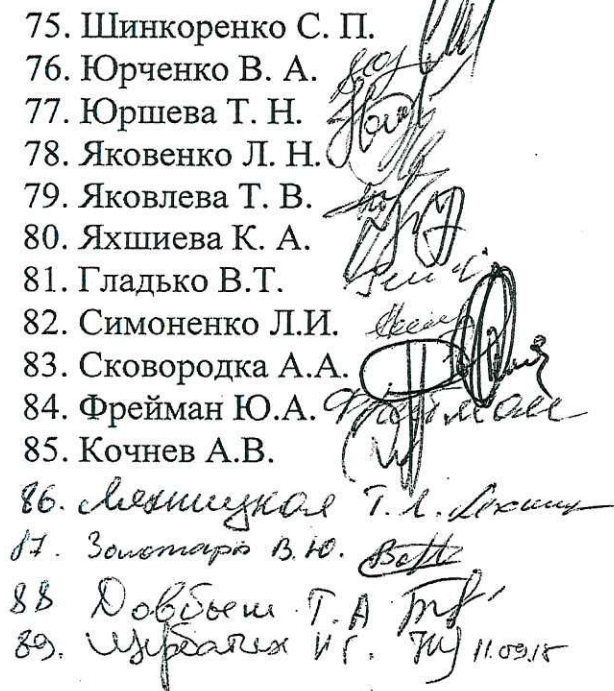 75. Шинкоренко С. П.
76. Юрченко В. А.
77. Юршева Т. Н.
78. Яковенко Л. Н.
79. Яковлева Т. В.
80. Яхшиева К. А.
81. Гладько В.Т.
82. Симоненко Л.И.
83. Сковородка А.А.
84. Фрейман Ю.А. Фрейман
85. Кочнев А.В.
86. Т. Л.
87. В. Ю.
88 Довбыш Т. А
89. 11.09.15